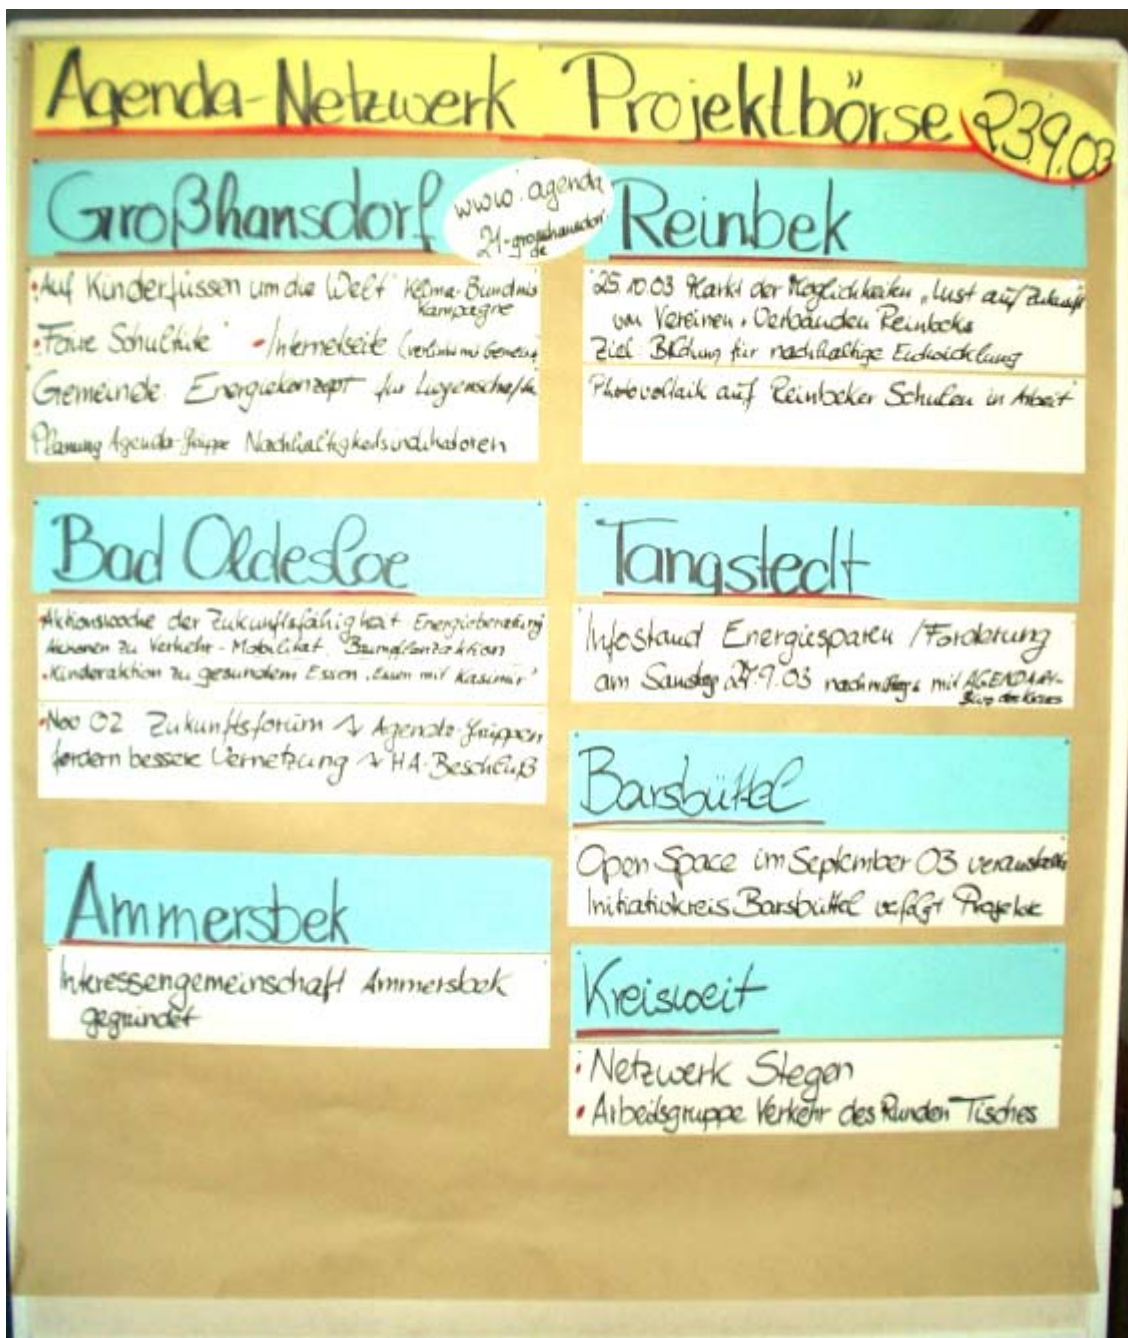 Agenda-Netzwerk Projektbörse 23.9.03
Großhansdorf
www.agenda
21-grosshansdorf.
de
• Auf Kinderfüssen um die Welt" Klima-Bündnis
Kampagne
• Faire Schultüte" • Internetseite
Gemeinde Energiekonzept für
Planung Agenda-Gruppe Nachhaltigkeitsindikatoren
Bad Oldesloe
• Aktionswoche der Zukunftsfähigkeit Energieberatung
Aktionen zu Verkehr - Mobilität, Baumpflanzaktion
• Kinderaktion zu gesundem Essen „Essen mit Kasimir"
• Nov 02 Zukunftsforum Agenda-Gruppen
fordern bessere Vernetzung HA-Beschluß
Ammersbek
Interessengemeinschaft Ammersbek
gegründet
Reinbek
25.10.03 Markt der Möglichkeiten „Lust auf Zukunft
von Vereinen, Verbänden Reinbeks
Ziel: Bildung für nachhaltige Entwicklung
Photovoltaik auf Reinbeker Schulen in Arbeit
Tangstedt
Infostand Energiesparen / Förderung
am Samstag 27.9.03 nachmittags mit
des Kreises
Barsbüttel
Open Space im September 03 veranstaltet
Initiativkreis Barsbüttel verfolgt Projekte
Kreisweit
• Netzwerk Stegen
• Arbeitsgruppe Verkehr des Runden Tisches